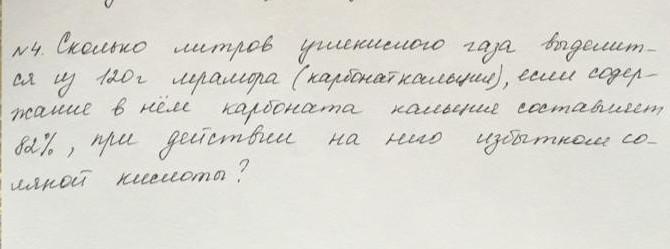 №4. Сколько литров углекислого газа выделит-
ся из 120г мрамора (карбонат кальция), если содер-
жание в нём карбоната кальция составляет
82%, при действии на него избытком со-
ляной кислоты?